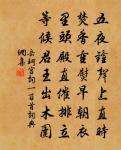 五夜諠譁上直時
焚香重熨早朝衣
星頭殿直催排立
等候君王出木圍
岳珂宮詞一百首詞典
網集